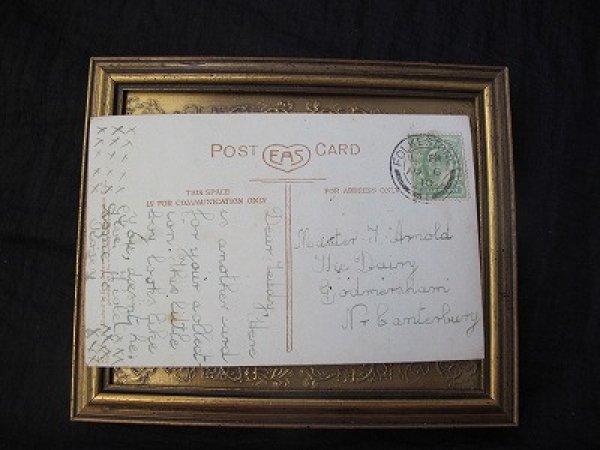 POST EAS CARD
THIS SPACE
IS FOR COMMUNICATION ONLY
FOR ADDRESS ONLY
FOLKESTONE
Dear Teddy, Here
is another card
for your collect
ion. This little
boy looks like
you, doesn't he.
Master T. Arnold
The Dairy
Godmersham
Nr Canterbury